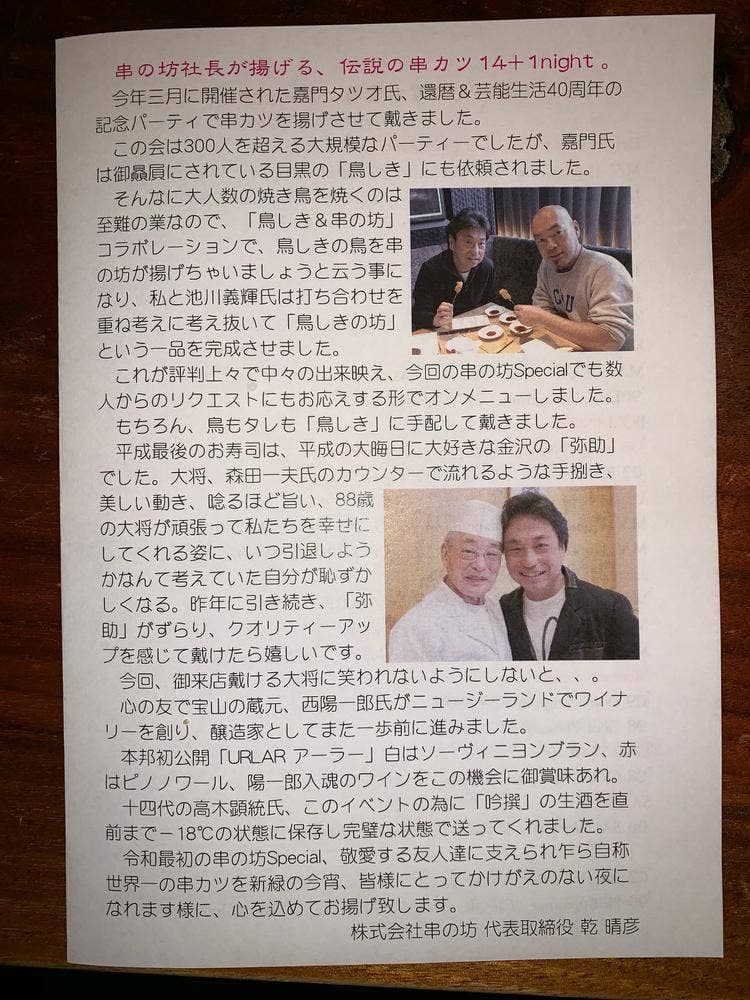 串の坊社長が揚げる、伝説の串カツ14+1night。
今年三月に開催された嘉門タツオ氏、還暦＆芸能生活40周年の
記念パーティで串カツを揚げさせて戴きました。
この会は300人を超える大規模なパーティーでしたが、嘉門氏
は御贔屓にされている目黒の「鳥しき」にも依頼されました。
そんなに大人数の焼き鳥を焼くのは
至難の業なので、「鳥しき＆串の坊」
コラボレーションで、鳥しきの鳥を串
の坊が揚げちゃいましょうと云う事に
なり、私と池川義輝氏は打ち合わせを
重ね考えに考え抜いて「鳥しきの坊」
という一品を完成させました。
これが評判上々で中々の出来映え、今回の串の坊Specialでも数
人からのリクエストにもお応えする形でオンメニューしました。
もちろん、鳥もタレも「鳥しき」に手配して戴きました。
平成最後のお寿司は、平成の大晦日に大好きな金沢の「弥助」
でした。大将、森田一夫氏のカウンターで流れるような手捌き、
美しい動き、唸るほど旨い、88歳
の大将が頑張って私たちを幸せに
してくれる姿に、いつ引退しよう
かなんて考えていた自分が恥ずか
しくなる。昨年に引き続き、「弥
助」がずらり、クオリティーアッ
プを感じて戴けたら嬉しいです。
今回、御来店戴ける大将に笑われないようにしないと、、、。
心の友で宝山の蔵元、西陽一郎氏がニュージーランドでワイナ
リーを創り、醸造家としてまた一歩前に進みました。
本邦初公開「URLAR アーラー」白はソーヴィニヨンブラン、赤
はピノノワール、陽一郎入魂のワインをこの機会に御賞味あれ。
十四代の高木顕統氏、このイベントの為に「吟撰」の生酒を直
前まで－18℃の状態に保存し完璧な状態で送ってくれました。
令和最初の串の坊Special、敬愛する友人達に支えられ乍ら自称
世界一の串カツを新緑の今宵、皆様にとってかけがえのない夜に
なれます様に、心を込めてお揚げ致します。
株式会社串の坊 代表取締役 乾 晴彦